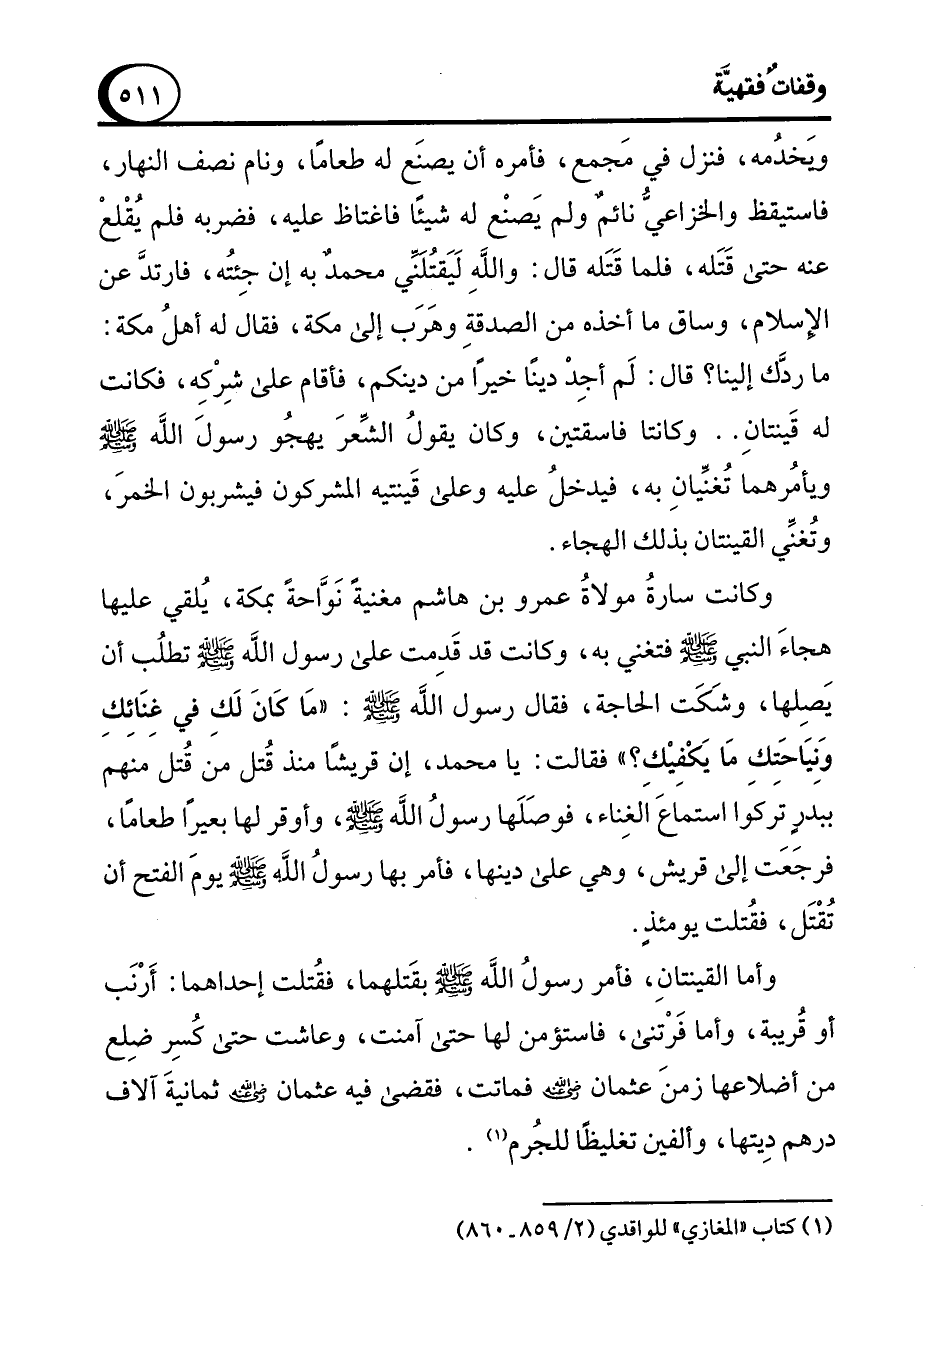 وقفات فقهيَّة
٥١١
ويَخدُمه، فنزل في مَجمع، فأمره أن يصنَع له طعامًا، ونام نصف النهار،
فاستيقظ والخزاعيُّ نائمٌ ولم يَصنْع له شيئًا فاغتاظ عليه، فضربه فلم يُقْلعْ
عنه حتىٰ قَتَله، فلما قَتَله قال: واللَّهِ لَيَقتُلَنِّي محمدٌ به إن جئتُه، فارتدَّ عن
الإسلام، وساق ما أخذه من الصدقةِ وهَرَب إلىٰ مكة، فقال له أهلُ مكة:
ما ردَّك إلينا؟ قال: لَم أجِدْ دينًا خيرًا من دينكم، فأقام علىٰ شِرْكِه، فكانت
له قَينتانِ.. وكانتا فاسقتين، وكان يقولُ الشِّعرَ يهجُو رسولَ اللَّه ﷺ
ويأمُرهما تُغنِّيانِ به، فيدخلُ عليه وعلىٰ قَينتيه المشركون فيشربون الخمرَ،
وتُغنِّي القينتان بذلك الهجاء.
وكانت سارةُ مولاةُ عمرو بن هاشم مغنيةً نَوَّاحةً بمكة، يُلقي عليها
هجاءَ النبي ﷺ فتغني به، وكانت قد قَدِمت علىٰ رسول اللَّه ﷺ تطلُب أن
يَصِلها، وشَكَت الحاجة، فقال رسول اللَّه ﷺ : «مَا كَانَ لَكِ في غِنَائِكِ
وَنِيَاحَتِكِ مَا يَكْفِيْكِ؟» فقالت: يا محمد، إن قريشًا منذ قُتل من قُتل منهم
ببدرٍ تركوا استماعَ الغناء، فوصَلَها رسولُ اللَّه ﷺ، وأوقر لها بعيرًا طعامًا،
فرجَعَت إلىٰ قريش، وهي علىٰ دينها، فأمر بها رسولُ اللَّهِ ﷺ يومَ الفتح أن
تُقْتَل، فقُتلت يومئذٍ.
وأما القينتانِ، فأمر رسولُ اللَّه ﷺ بقَتلهما، فقُتلت إحداهما: أَرْنَب
أو قُريبة، وأما فَرْتنىٰ، فاستؤمن لها حتىٰ آمنت، وعاشت حتىٰ كُسِر ضِلع
من أضلاعها زمنَ عثمان رضي الله عنه فماتت، فقضىٰ فيه عثمان رضي الله عنه ثمانيةَ آلاف
درهم دِيتها، وألفين تغليظًا للجُرم(١) .
(١) كتاب «المغازي» للواقدي (٢/ ٨٥٩ـ ٨٦٠)